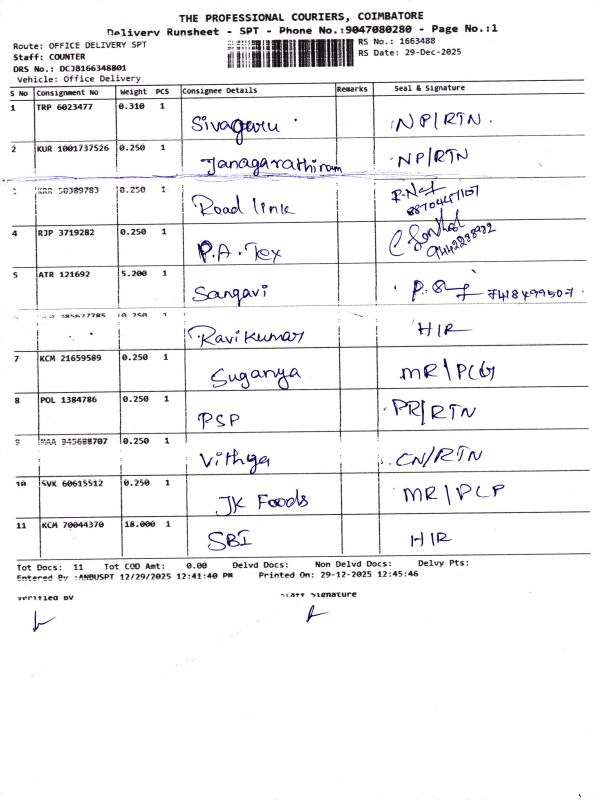 THE PROFESSIONAL COURIERS, COIMBATORE
Delivery Runsheet - SPT - Phone No.:9047080280 - Page No.:1
Route: OFFICE DELIVERY SPT
RS No.: 1663488
Staff: COUNTER
RS Date: 29-Dec-2025
DRS No.: DCJB166348801
Vehicle: Office Delivery
S No Consignment No Weight PCS Consignee Details Remarks Seal & Signature
1 TRP 6023477 0.310 1 Sivaguru NP/RTN
2 KUR 1001737526 0.250 1 Janagarathiram NP/RTN
50389783 0.250 1 Road link 8870447107
4 RJP 3719282 0.250 1 P.A. Tex 9442288932
5 ATR 121692 5.200 1 Sangavi 7418499507
0.250 1 Ravikumar HIR
7 KCM 21659589 0.250 1 Suganya MR/PCG
8 POL 1384786 0.250 1 PSP PR/RTN
9 MAA 945688707 0.250 1 Vithya CN/RTN
10 SVK 60615512 0.250 1 JK Foods MR/PCP
11 KCM 70044370 18.000 1 SBI HIR
Tot Docs: 11 Tot COD Amt: 0.00 Delvd Docs: Non Delvd Docs: Delvy Pts:
Entered By :ANBUSPT 12/29/2025 12:41:40 PM Printed On: 29-12-2025 12:45:46
Verified By Staff Signature